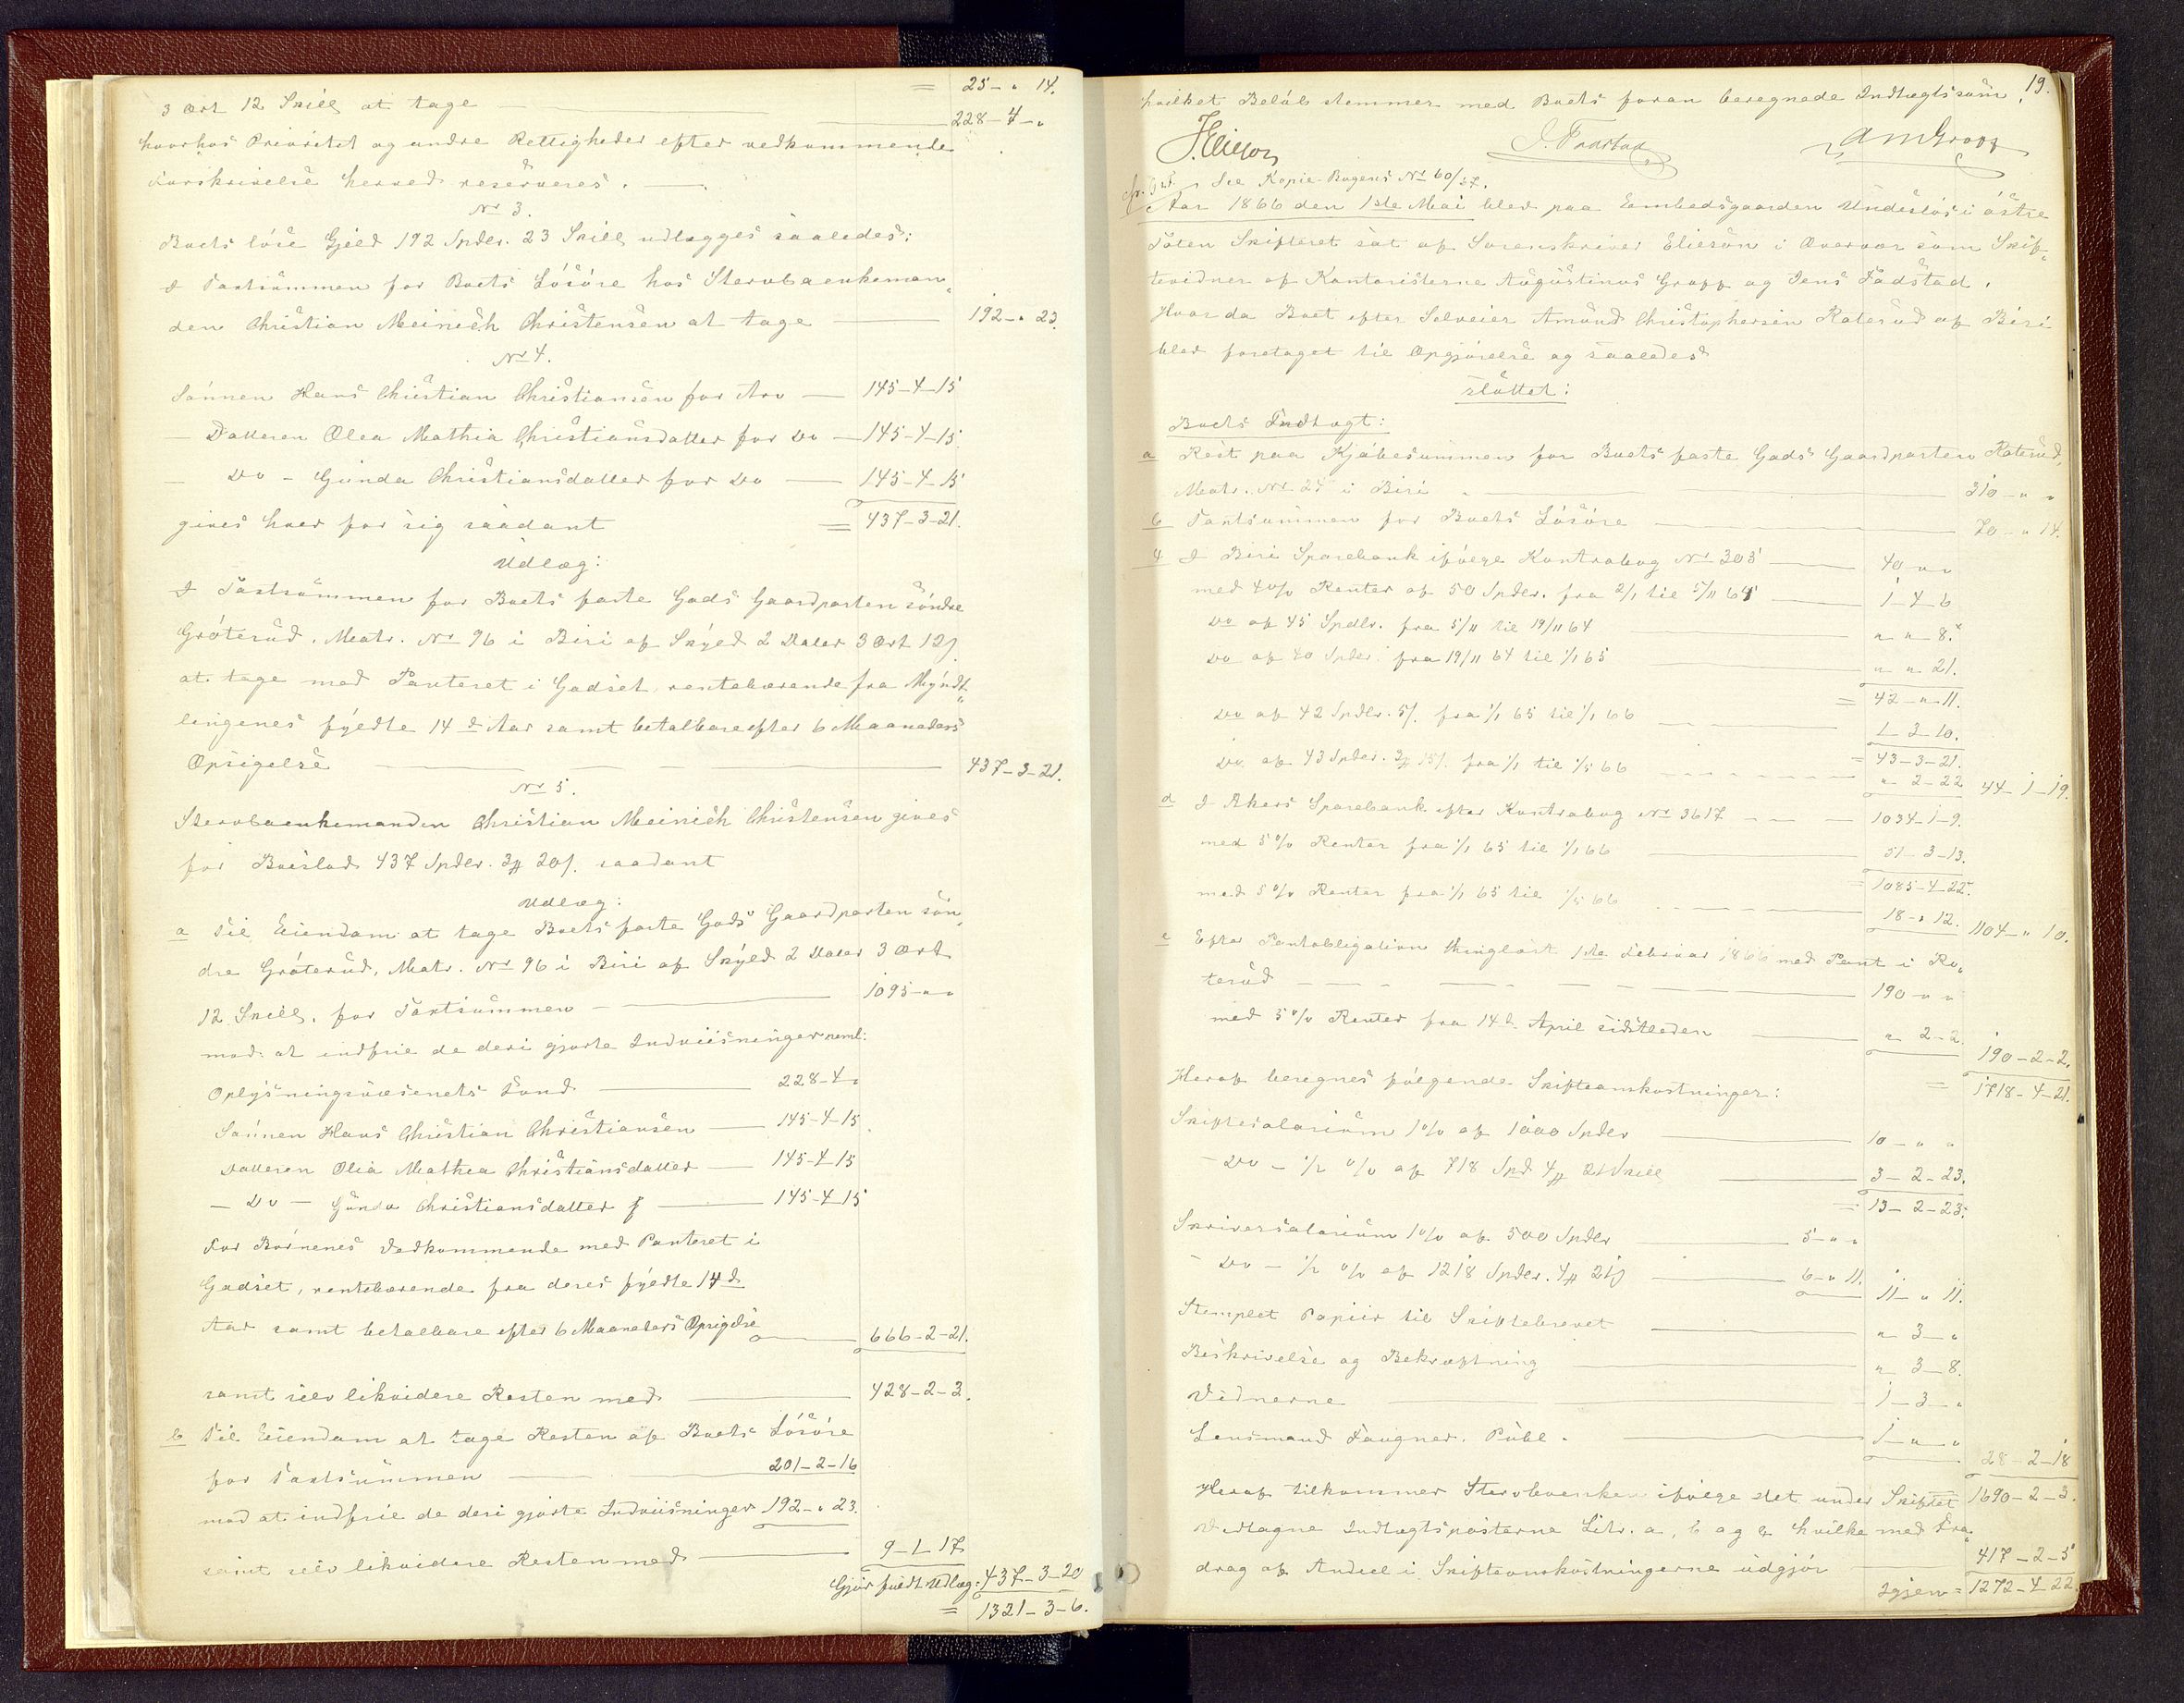 = 25 - " 14.
3 Ort 12 Skill at tage — 228 - 4 - "
hvorhos Prioritet og andre Rettigheder efter vedkommende
Forskrivelse herved reserveres.
No 3.
Boets løse Gjeld 192 Spdlr. 23 Skill udlægges saaledes:
I Taxtsummen for Boets Løsøre hos Stervboenkeman„
den Christian Meinich Christensen at tage — 192 - " 23.
No 4.
Sønnen Hans Christian Christiansen for Arv — 145-4-15
— Datteren Olea Mathia Christiansdatter for Do — 145-4-15.
— Do - Gunda Christiansdatter for Do — 145-4-15
gives hver for sig saadant = 437-3-21.
Udlæg:
I Taxtsummen for Boets faste Gods Gaardparten søndre
Grøterud, Matr. No 96 i Biri af Skyld 2 Daler 3 Ort 12 ſ
at tage med Panteret i Godset, rentebærende fra Mynd„
lingenes fyldte 14de Aar samt betalbare efter 6 Maaneders
Opsigelse — 437-3-21.
No 5.
Stervboenkemanden Christian Meinich Christensen gives
for Boeslod 437 Spdlr. 3 # 20 ſ. saadant
Udlæg:
a Til Eiendom at tage Boets faste Gods Gaardparten søn„
dre Grøterud, Matr. No 96 i Biri af Skyld 2 Daler 3 Ort
12 Skill. for Taxtsummen — 1095 - " "
mod at indfrie de deri gjorte Indviisninger neml:
Oplysningsvæsenets Fond — 228-4 "
Sønnen Hans Christian Christiansen — 145-4-15.
Datteren Olia Mathea Christiansdatter — 145-4-15
— Do — Gunda Christiansdatter — 145-4-15
For Børnenes Vedkommende med Panteret i
Godset, rentebærende fra deres fyldte 14de
Aar samt betalbare efter 6 Maaneders Opsigelse — 666-2-21.
samt selv likvidere Resten med — 428-2-3.
b Til Eiendom at tage Resten af Boets Løsøre
for Taxtsummen — 201-2-16
mod at indfrie de deri gjorte Indviisninger 192 - " 23.
samt selv likvidere Resten med — 9-1-17
Gjør fuldt Udlæg: 437-3-20
= 1321-3-6.
19.
hvilket Beløb stemmer med Boets foran beregnede Indtægtssum.
Elieson J. Fadstad AM Gropp
See Kopie-Bogens No 60/67.
Aar 1866 den 1ste Mai blev paa Embedsgaarden Undesløs i østre
Toten Skifteret sat af Sorenskriver Elieson i Overvær som Skif„
tevidner af Kontoristerne Augustinus Gropp og Jens Fadstad.
Hvor da Boet efter Selveier Amund Christophersen Raterud af Biri
blev foretaget til Opgjørelse og saaledes
sluttet:
Boets Indtægt:
a Rest paa Kjøbesummen for Boets faste Gods Gaardparten Raterud,
Matr. No 27 i Biri — 310 - " "
b Taxtsummen for Boets Løsøre — 70 - " 14.
c I Biri Sparebank ifølge Kontrabog No 303 — 40 " "
med 4 o/o Renter af 50 Spdlr. fra 2/1 til 5/11 64 — 1-4-6
Do af 45 Spdlr. fra 5/11 til 19/11 64 — " " 8.
Do af 40 Spdlr. fra 19/11 64 til 1/1 65 — " " 21.
= 42 - " 11.
Do af 42 Spdlr. 5 ſ. fra 1/1 65 til 1/1 66 — 1-3-10.
= 43-3-21.
Do af 43 Spdlr. 3 # 15 ſ. fra 1/1 til 1/5 66 — " 2-22 44-1-19.
d I Akers Sparebank efter Kontrabog No 3617 — 1034-1-9.
med 5 o/o Renter fra 1/1 65 til 1/1 66 — 51-3-13.
= 1085-4-22.
med 5 o/o Renter fra 1/1 65 til 1/5 66 — 18 - " 12. 1104 - " 10.
e Efter Pantobligation thinglæst 1ste Februar 1866 med Pant i Ra„
terud — 190 - " "
med 5 o/o Renter fra 14de April sidstleden — " 2-2. 190-2-2.
Heraf beregnes følgende Skifteomkostninger: = 1718-4-21.
Skiftesalarium 1 o/o af 1000 Spdlr — 10 - " "
— Do — 1/2 o/o af 718 Spd 4 # 21 Skill — 3-2-23.
= 13-2-23.
Skriversalarium 1 o/o af 500 Spdlr — 5 - " "
— Do — 1/2 o/o af 1218 Spdlr. 4 # 21 ſ — 6 - " 11. 11 " 11.
Stemplet Papiir til Skiftebrevet — " 3 - "
Beskrivelse og Bekræftning — " 3-8.
Vidnerne — 1-3 - "
Lensmand Faugner. Publ. — 1 - " " 28-2-18
Heraf tilkommer Stervboenken ifølge det under Skiftet 1690-2-3.
Vedtagne Indtægtsposterne Litr. a, b og c hvilke med Fra„
drag af Andeel i Skifteomkostningerne udgjør — 417-2-5
Igjen = 1272-4-22.